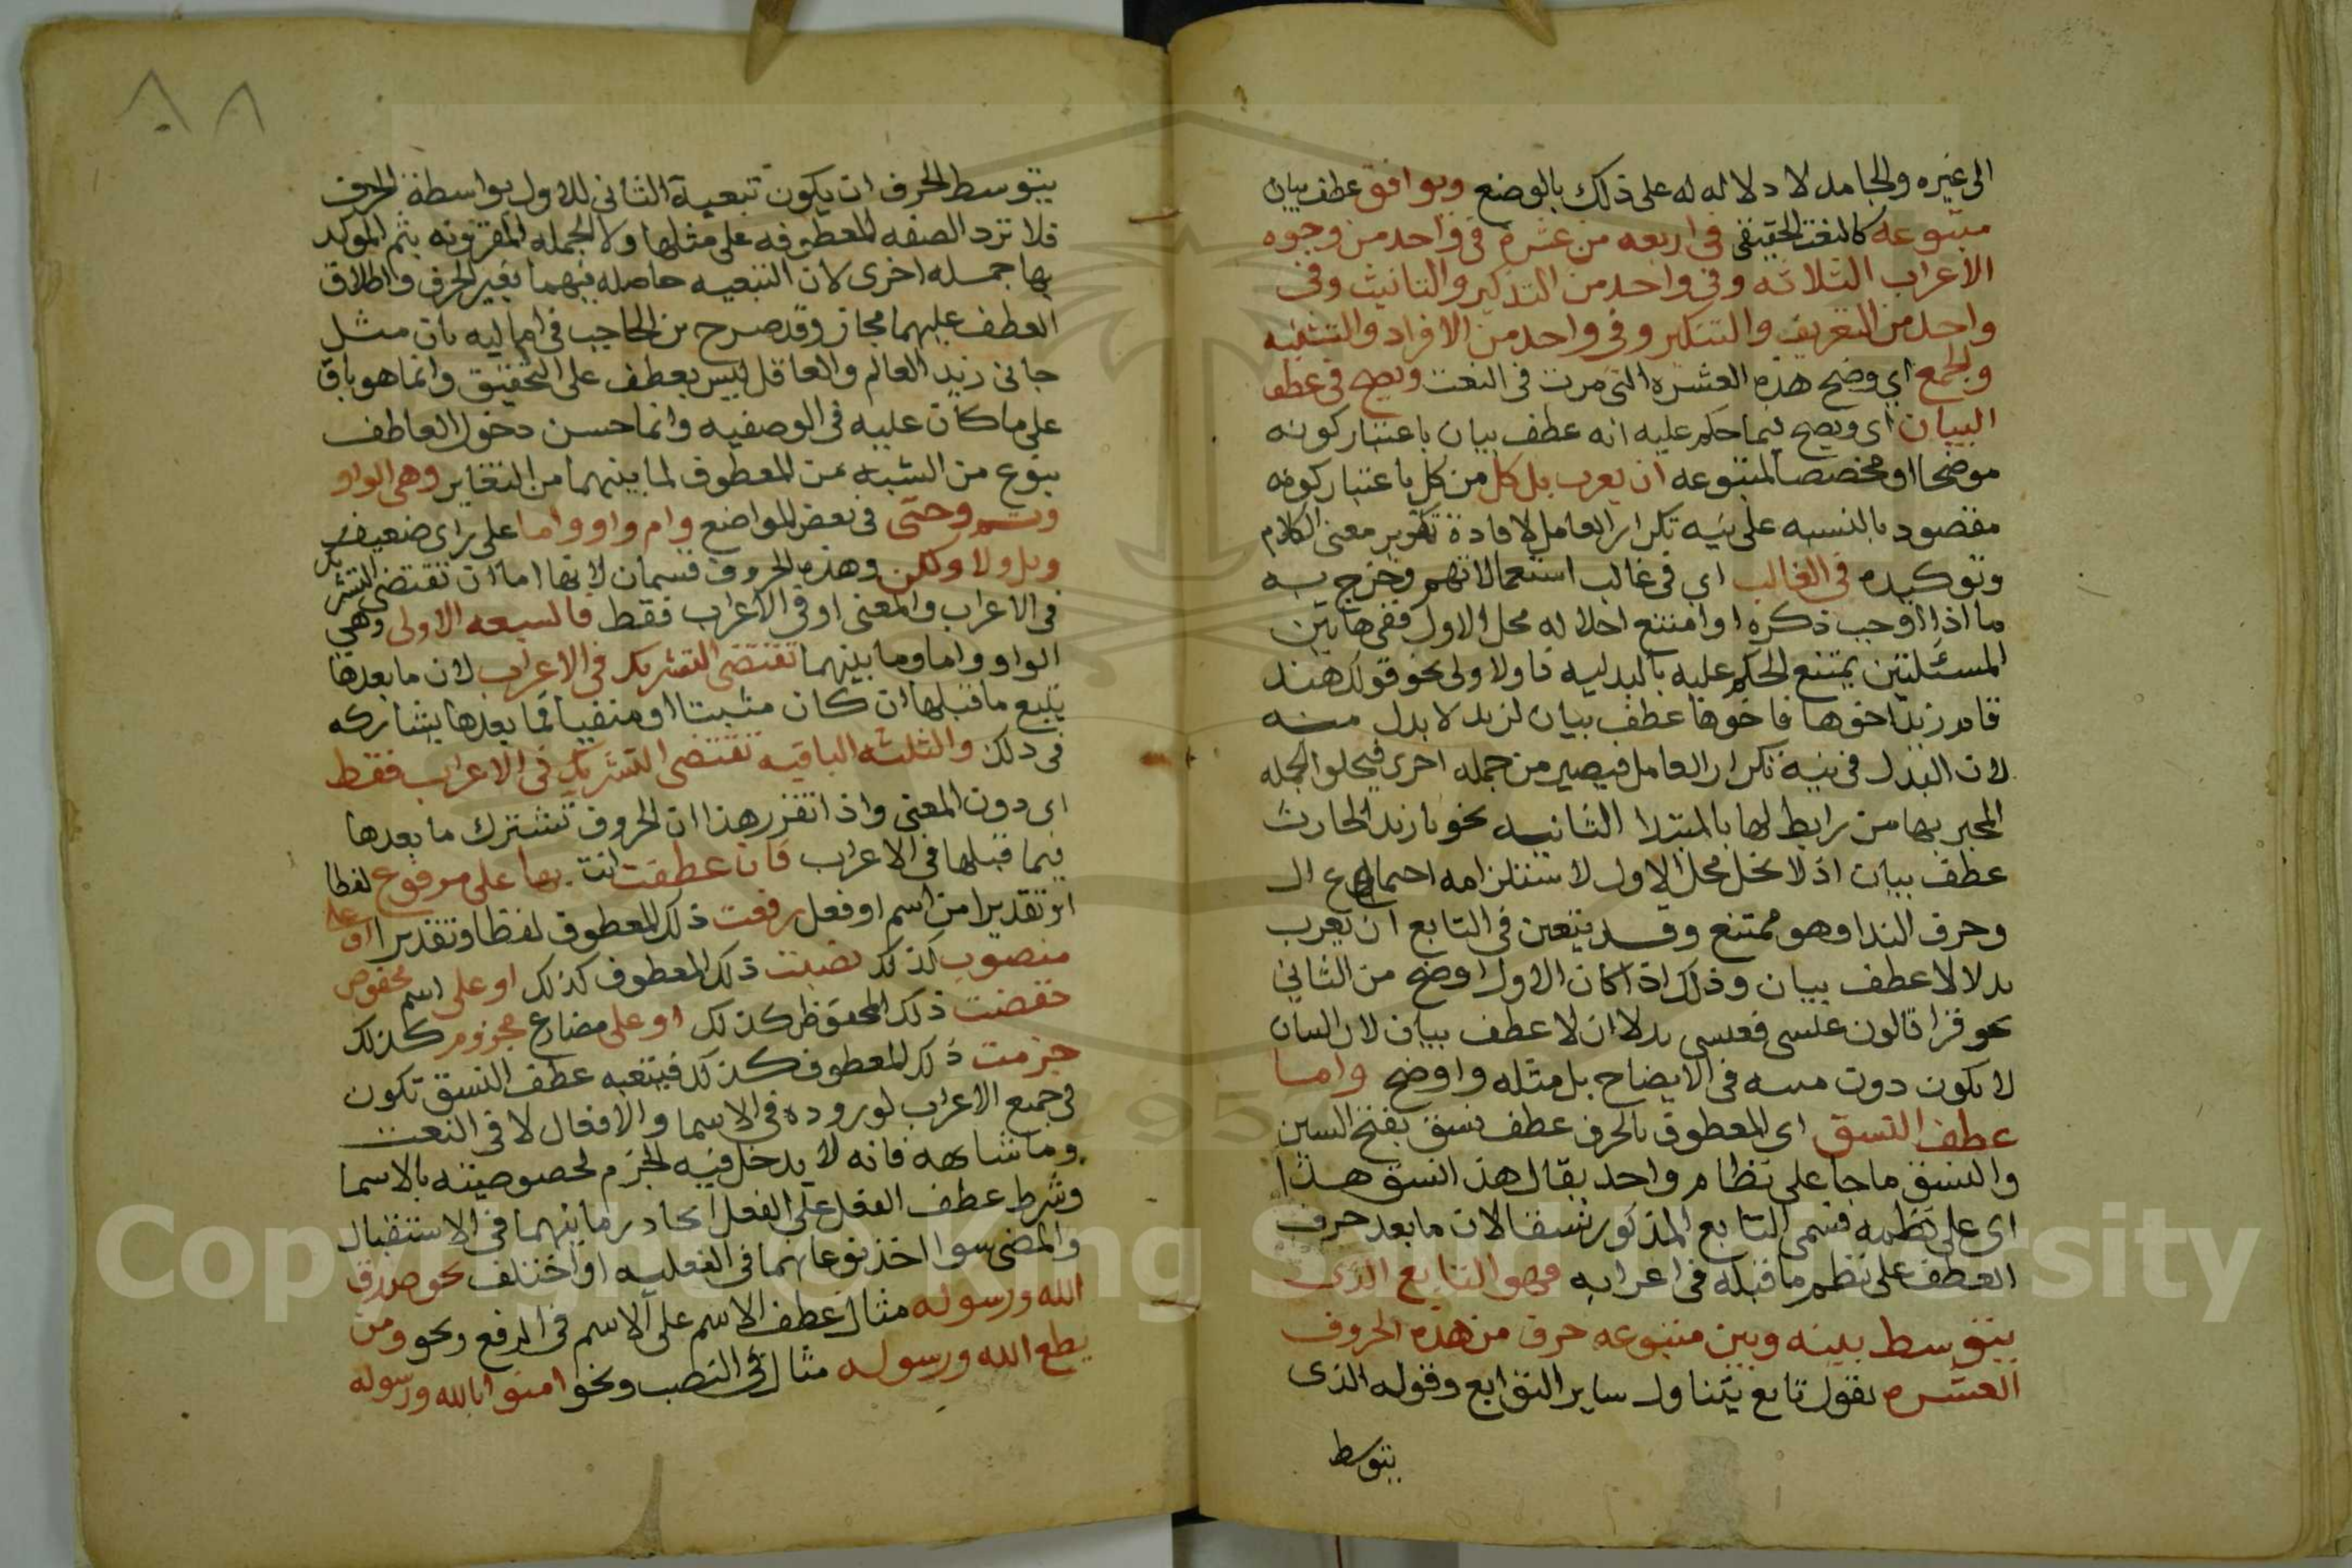 الى غيره والجامد لا دلاله له على ذلك بالوضع ويوافق عطف بيان
متبوعه كالنعت الحقيقي في اربعه من عشرة في واحد من وجوه
الاعراب الثلاثه وفي واحد من التذكير والتانيث وفي
واحد من التعريف والتنكير وفي واحد من الافراد والتثنيه
والجمع اي وضح هذه العشره التي مرت في النعت ويصح في عطف
البيان اي ويصح فيما حكم عليه انه عطف بيان باعتبار كونه
موضحا او مخصصا لمتبوعه ان يعرب بدل كل من كل باعتبار كونه
مقصود بالنسبه على نيه تكرار العامل لافادة تقرير معنى الكلام
وتوكيده في الغالب اي في غالب استعمالاتهم وخرج به
ما اذا اوجب ذكره او امتنع احلاله محل الاول ففي هاتين
المسئلتين يمتنع الحكم عليه بالبدليه فاولا ولى نحو قولك هند
قام زيد اخوها فاخوها عطف بيان لزيد لا بدل منه
لان البدل في نيه تكرار العامل فيصير من جمله اخرى فيخلو الجمله
المخبر بها من رابط لها بالمبتدا الثانيه نحو يا زيد الحارث
عطف بيان اذ لا يحل محل الاول لاستلزامه اجتماع ال
وحرف الندا وهو ممتنع وقد يتعين في التابع ان يعرب
بدلا لا عطف بيان وذلك اذا كان الاول اوضح من الثاني
نحو قرا قالون عيسى فعيسى بدلا ان لا عطف بيان لان البيان
لا يكون دون مبينه في الايضاح بل مثله واوضح واما
عطف النسق اي المعطوف بالحرف عطف نسق بفتح السين
والنسق ما جا على نظام واحد يقال هذا نسق هذا
اي على نظمه فسمى التابع المذكور نسقا لان ما بعد حرف
العطف على نظم ما قبله في اعرابه فهو التابع الذي
يتوسط بينه وبين متبوعه حرف من هذه الحروف
العشره بقول تابع يتناول ساير التوابع وقوله الذي
يتوسط
٨٨
يتوسط الحرف ان يكون تبعية الثاني للاول بواسطة الحرف
فلا ترد الصفه المعطوفه على مثلها ولا الجمله المقرونه بثم الموكد
بها جمله اخرى لان التبعيه حاصله فيهما بغير الحرف واطلاق
العطف عليهما مجاز وقد صرح بن الحاجب في اماليه بان مثل
جاني زيد العالم والعاقل ليس بعطف على التحقيق وانما هو باق
على ما كان عليه في الوصفيه وانما حسن دخول العاطف
بنوع من الشبه من المعطوف لما بينهما من التغاير وهي الواو
وثم وحتى في بعض المواضع وام واو واما على راى ضعيف
وبل ولا ولكن وهذه الحروف قسمان لانها اما ان تقتضى التشريك
في الاعراب والمعنى او في الاعراب فقط فالسبعه الاولى وهي
الواو واما وما بينهما تقتضى التشريك في الاعراب لان ما بعدها
يتبع ما قبلها ان كان مثبتا او منفيا فما بعدها يشاركه
في ذلك والثلثه الباقيه تقتضى التشريك في الاعراب فقط
اى دون المعنى واذا تقرر هذا ان الحروف تشترك ما بعدها
فيما قبلها في الاعراب فان عطفت انت بها على مرفوع لفظا
او تقديرا من اسم او فعل رفعت ذلك المعطوف لفظا وتقديرا او على
منصوب كذلك نصبت ذلك المعطوف كذلك او على اسم مخفوض
خفضت ذلك المخفوظ كذلك او على مضارع مجزوم كذلك
جزمت ذلك المعطوف كذلك فتبعيه عطف النسق تكون
في جميع الاعراب لوروده في الاسما والافعال لا في النعت
وما شابهه فانه لا يدخل فيه الجزم لخصوصيته بالاسما
وشرط عطف الفعل على الفعل اتحاد زمانيهما في الاستقبال
والمضى سوا اتحد نوعاهما في الفعليه او اختلف نحو صدق
الله ورسوله مثال عطف الاسم على الاسم في الرفع ونحو ومن
يطع الله ورسوله مثال في النصب ونحو امنوا بالله ورسوله
Copyright © King Saud University